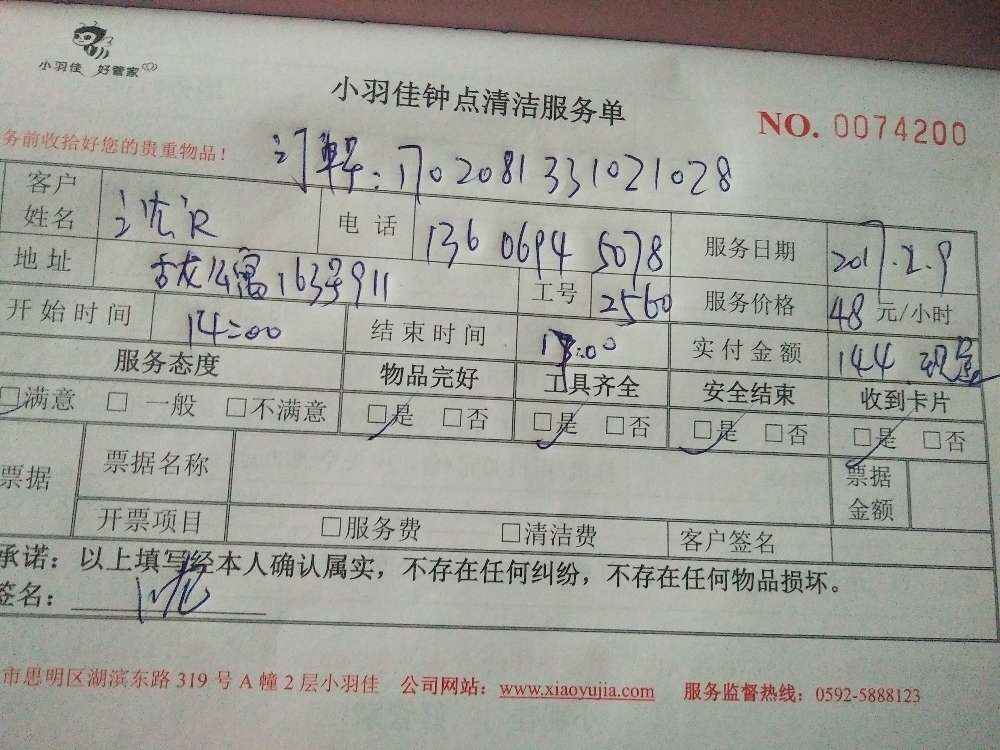 小羽佳 好管家
小羽佳钟点清洁服务单
NO. 0074200
务前收拾好您的贵重物品！
订单：1702081331021028
客户姓名 电话 136 0694 5078 服务日期 2017.2.9
地址 公寓163号911 工号 2560 服务价格 48 元/小时
开始时间 14:00 结束时间 17:00 实付金额 144
服务态度 物品完好 工具齐全 安全结束 收到卡片
□满意 □ 一般 □不满意 □是 □否 □是 □否 □是 □否 □是 □否
票据 票据名称 票据金额
开票项目 □服务费 □清洁费 客户签名
承诺：以上填写经本人确认属实，不存在任何纠纷，不存在任何物品损坏。
签名：
市思明区湖滨东路 319 号 A 幢 2 层小羽佳 公司网站：www.xiaoyujia.com 服务监督热线：0592-5888123